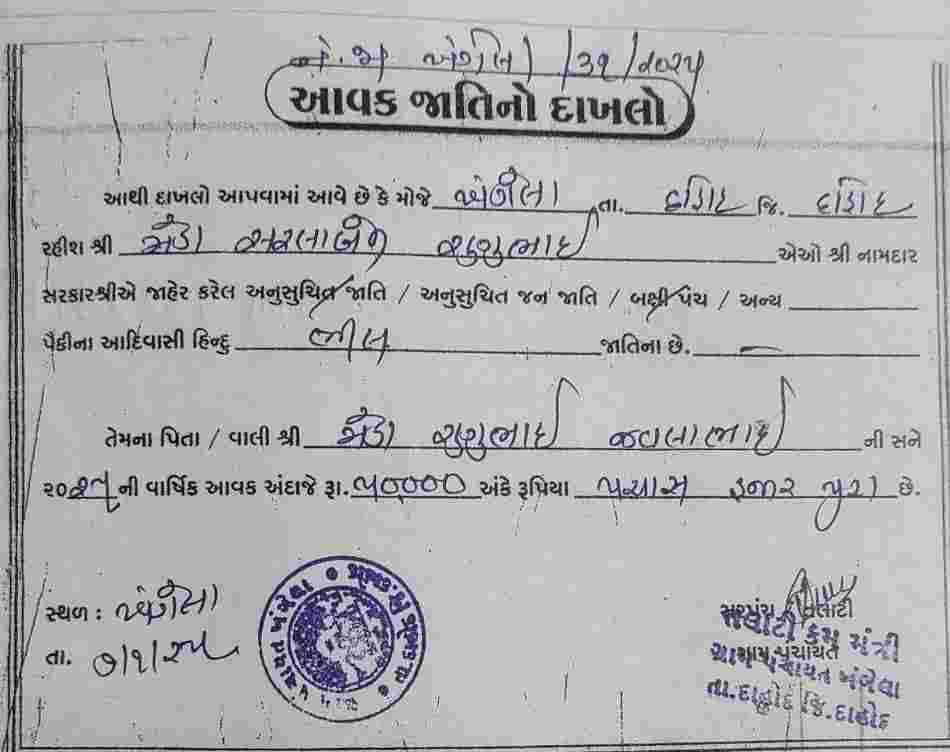 /૩૧/૨૦૨૫
આવક જાતિનો દાખલો
આથી દાખલો આપવામાં આવે છે કે મોજે ખંગેલા તા. દાહોદ જિ. દાહોદ
રહીશ શ્રી મેડા સરલાબેન રાણુભાઈ એઓ શ્રી નામદાર
સરકારશ્રીએ જાહેર કરેલ અનુસુચિત જાતિ / અનુસુચિત જન જાતિ / બક્ષી પંચ / અન્ય
પૈકીના આદિવાસી હિન્દુ ભીલ જાતિના છે. —
તેમના પિતા / વાલી શ્રી મેડા રાણુભાઈ જવલાભાઈ ની સને
૨૦૨૫ ની વાર્ષિક આવક અંદાજે રૂા. ૫૦,૦૦૦ અંકે રૂપિયા પચાસ હજાર પુરા છે.
સ્થળ : ખંગેલા
તા. ૭/૧/૨૫
સરપંચ / તલાટી
તલાટી કમ મંત્રી
ગ્રામ પંચાયત
ગ્રામ પંચાયત ખંગેલા
તા.દાહોદ જિ.દાહોદ